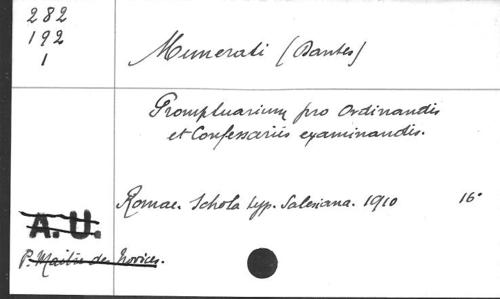 282
192
1
Munerati (Dantes)
Promptuarium pro Ordinandis
et Confessariis examinandis.
Romae. Schola typ. Salesiana. 1910 16°
A. U.
P. Maître des Novices.